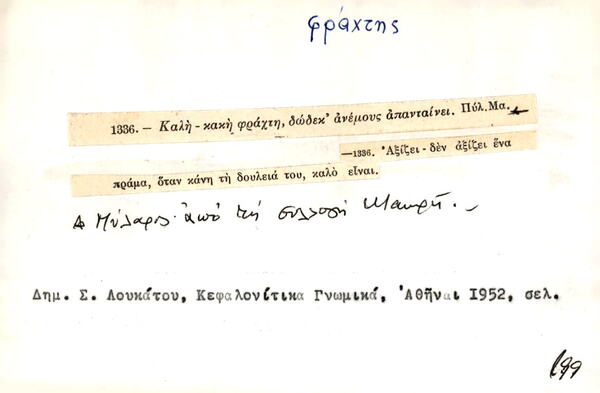 φράχτης
1336. — Καλὴ - κακὴ φράχτη, δώδεκ' ἀνέμους ἀπανταίνει. Πύλ. Μα.
—1336. Ἀξίζει - δὲν ἀξίζει ἕνα
πράμα, ὅταν κάνη τὴ δουλειά του, καλὸ εἶναι.
Πύλαρος ἀπὸ τὴ συλλογὴ Μακρῆ.
Δημ. Σ. Λουκάτου, Κεφαλονίτικα Γνωμικά, Ἀθῆναι 1952, σελ.
199